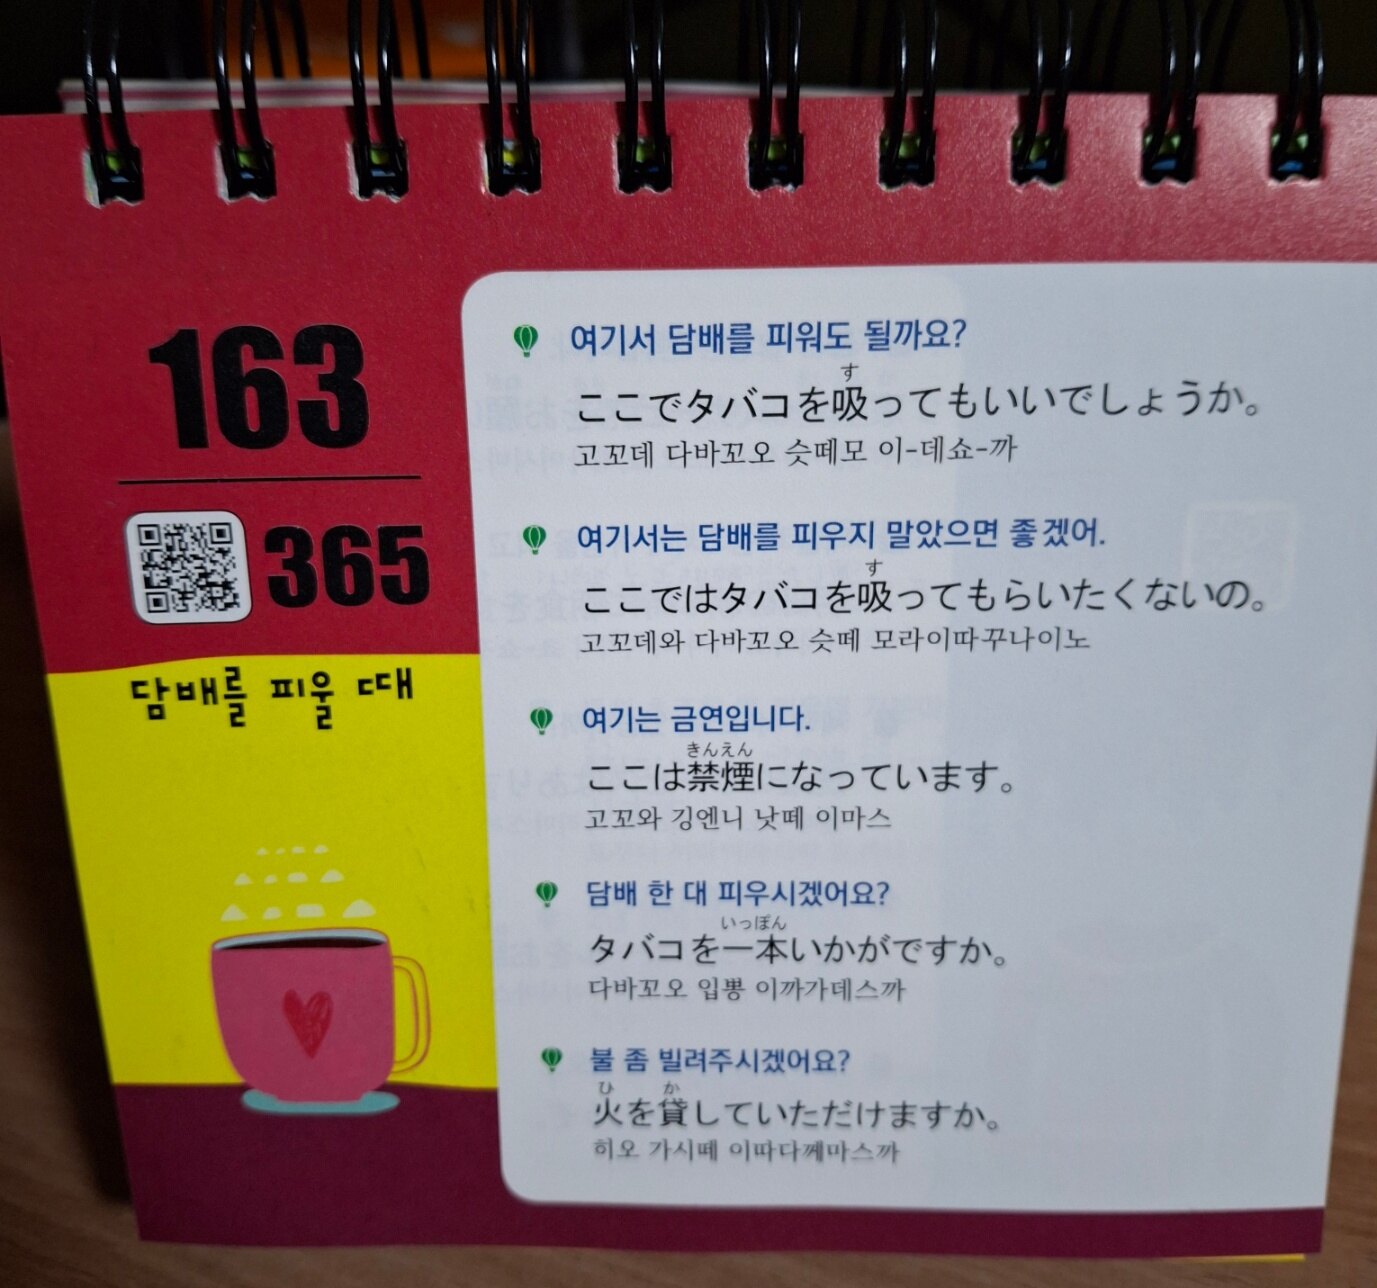 163
365
담배를 피울 때
여기서 담배를 피워도 될까요?
す
ここでタバコを吸ってもいいでしょうか。
고꼬데 다바꼬오 슷떼모 이-데쇼-까
여기서는 담배를 피우지 말았으면 좋겠어.
す
ここではタバコを吸ってもらいたくないの。
고꼬데와 다바꼬오 슷떼 모라이따꾸나이노
여기는 금연입니다.
きんえん
ここは禁煙になっています。
고꼬와 깅엔니 낫떼 이마스
담배 한 대 피우시겠어요?
いっぽん
タバコを一本いかがですか。
다바꼬오 입뽕 이까가데스까
불 좀 빌려주시겠어요?
ひ か
火を貸していただけますか。
히오 가시떼 이따다께마스까